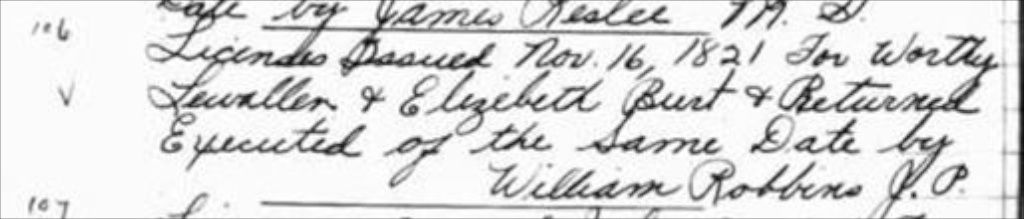 Date by James Reslee M. G.
106 Licenses Issued Nov. 16, 1821 For Worthy
Lewallen & Elizebeth Burt & Returned
Executed of the Same Date by
William Robbins J. P.
107